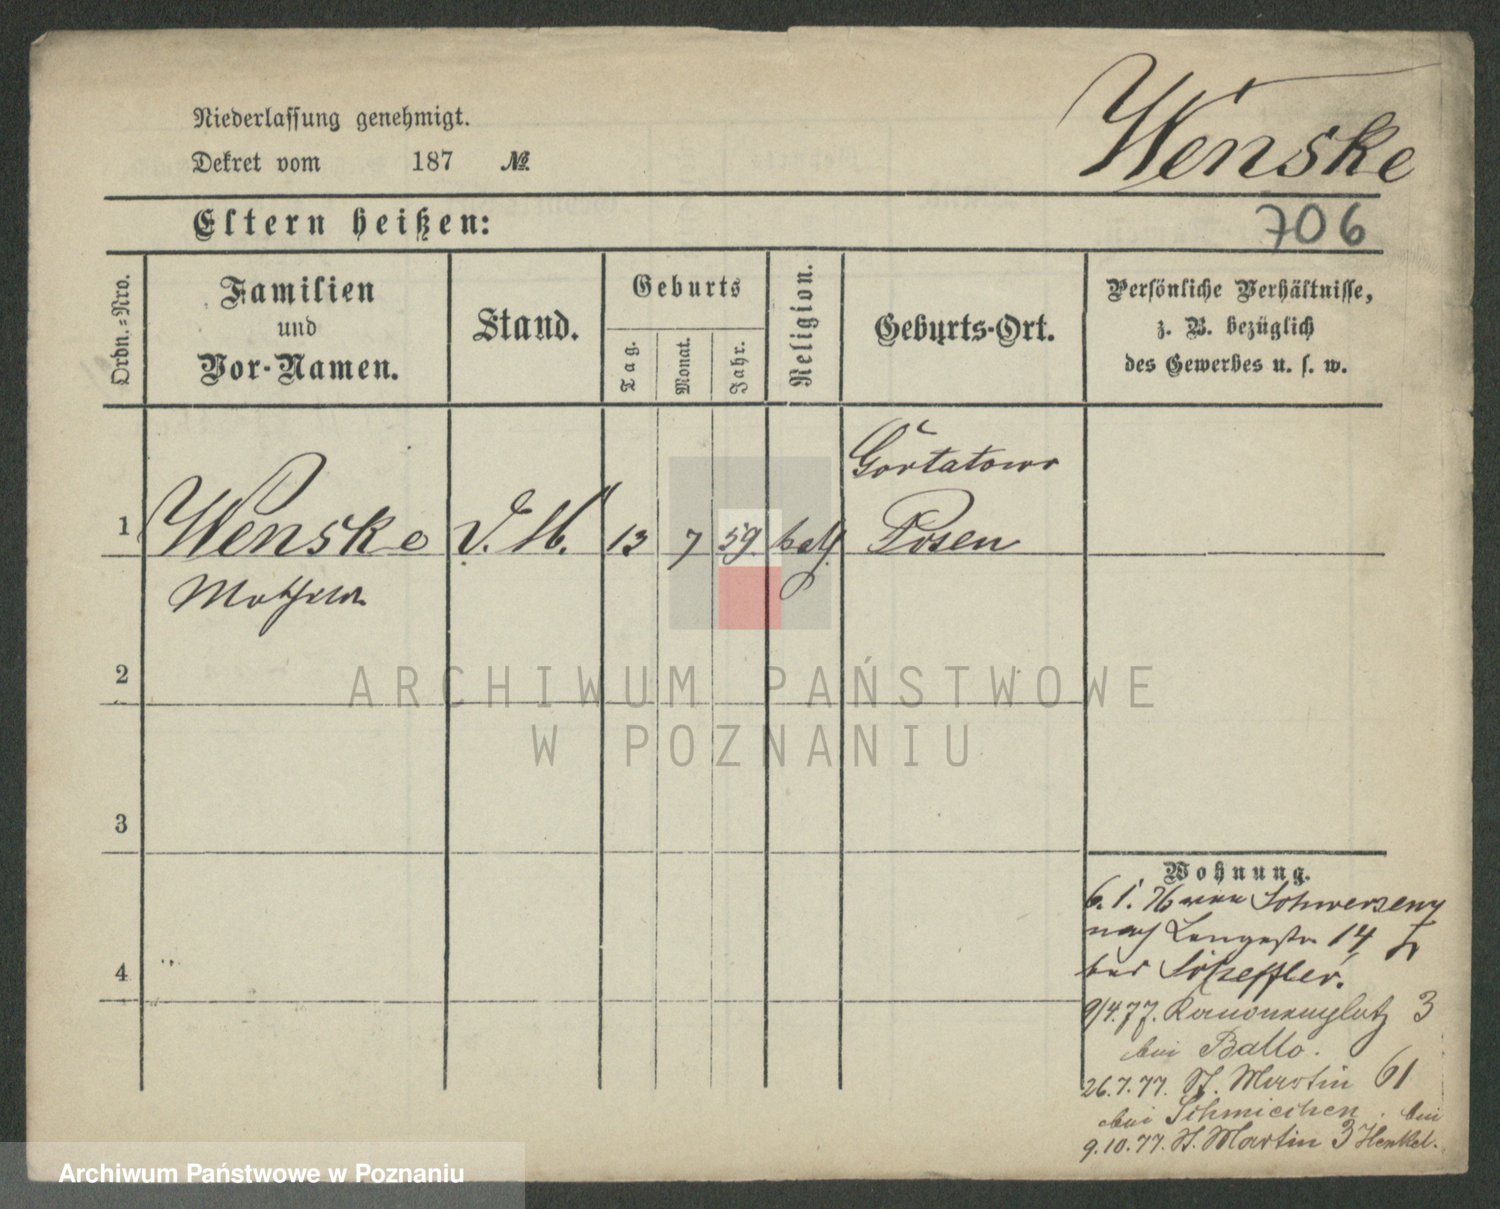 Niederlassung genehmigt.
Dekret vom 187 №
Wenske
706
Eltern heißen:
Ordn.-Nro.
Familien
und
Vor-Namen.
Stand.
Geburts
Tag.
Monat.
Jahr.
Religion.
Geburts-Ort.
Persönliche Verhältnisse,
z. B. bezüglich
des Gewerbes u. s. w.
1
Wenske
D. M.
13
7
59.
kath.
Gortatowo
Posen
2
3
4
Wohnung.
6. 1. 76 von Schwersenz
nach Langestr 14
bei Scheffler.
9/4.77. Kanonenplatz 3
bei Ballo.
26.7.77. St. Martin 61
bei Schmieden. bei
9.10.77. St. Martin 3 Henkel.
ARCHIWUM PAŃSTWOWE
W POZNANIU
Archiwum Państwowe w Poznaniu